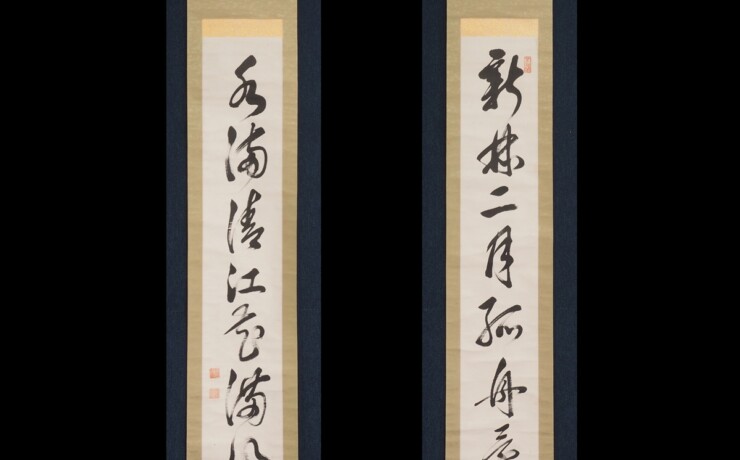 新林二月孤舟
水滿清江花滿